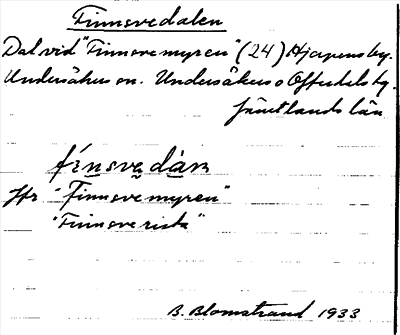 Finnsvedalen
Dal vid "Finnsvemyren" (24) Hjerpens by.
Undersåkers sn. Undersåkers o Offerdals tg.
Jämtlands län
fínsvedàn
Jfr "Finnsvemyren"
"Finnsverista"
B. Blomstrand 1933